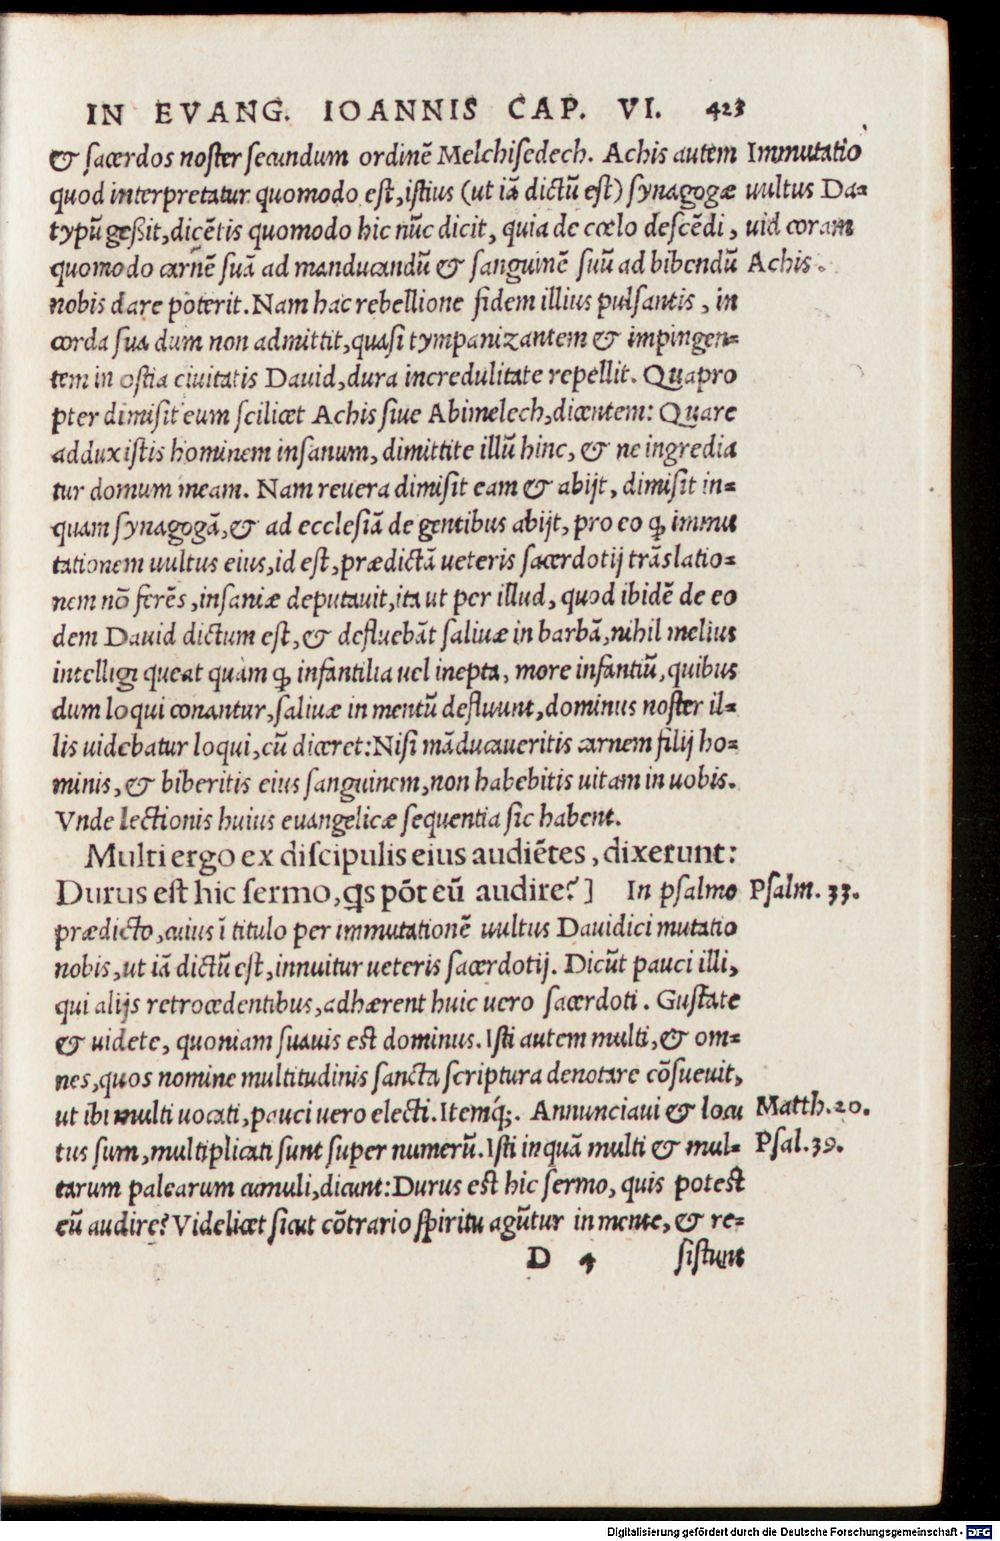 IN EVANG. IOANNIS CAP. VI. 423
& sacerdos noster secundum ordinē Melchisedech. Achis autem
quod interpretatur quomodo est, istius (ut iā dictū est) synagogæ
typū geßit, dicētis quomodo hic nūc dicit, quia de cœlo descēdi,
quomodo carnē suā ad manducandū & sanguinē suū ad bibendū
nobis dare poterit. Nam hac rebellione fidem illius pulsantis, in
corda sua dum non admittit, quasi tympanizantem & impingen=
tem in ostia ciuitatis David, dura incredulitate repellit. Quapro
pter dimisit eum scilicet Achis siue Abimelech, dicentem: Quare
adduxistis hominem insanum, dimittite illū hinc, & ne ingredia
tur domum meam. Nam reuera dimisit eam & abijt, dimisit in=
quam synagogā, & ad ecclesiā de gentibus abijt, pro eo ꝙ immu
tationem uultus eius, id est, prædictā ueteris sacerdotij trāslatio=
nem nō ferēs, insaniæ deputauit, ita ut per illud, quod ibidē de eo
dem David dictum est, & defluebāt saliuæ in barbā, nihil melius
intelligi queat quam ꝙ infantilia uel inepta, more infantiū, quibus
dum loqui conantur, saliuæ in mentū defluunt, dominus noster il=
lis uidebatur loqui, cū diceret: Nisi māducaueritis carnem filij ho=
minis, & biberitis eius sanguinem, non habebitis uitam in uobis.
Vnde lectionis huius euangelicæ sequentia sic habent.
Multi ergo ex discipulis eius audiētes, dixerunt:
Durus est hic sermo, q̨s pōt eū audire?] In psalmo
prædicto, cuius ī titulo per immutationē uultus Dauidici mutatio
nobis, ut iā dictū est, innuitur ueteris sacerdotij. Dicūt pauci illi,
qui alijs retrocedentibus, adhærent huic uero sacerdoti. Gustate
& uidete, quoniam suauis est dominus. Isti autem multi, & om=
nes, quos nomine multitudinis sancta scriptura denotare cōsueuit,
ut ibi multi uocati, pauci uero electi. Itemq́;. Annunciaui & locu
tus sum, multiplicati sunt super numerū. Isti inquā multi & mul=
tarum palearum cumuli, dicunt: Durus est hic sermo, quis potest
eū audire? Videlicet sicut cōtrario spiritu agūtur in mente, & re=
D 4 sistunt
Immutatio
uultus Da=
uid coram
Achis.
Psalm. 33.
Matth. 20.
Psal. 39.
Digitalisierung gefördert durch die Deutsche Forschungsgemeinschaft - DFG